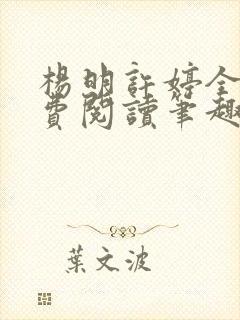 楊明許婷全
費閱讀筆趣
葉文波